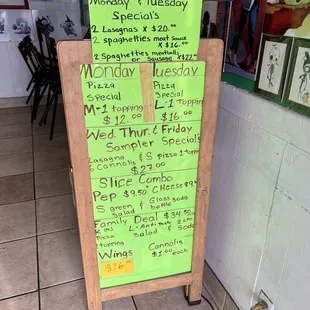 Monday & Tuesday
Special's
2 Lasagnas x $20.00
2 spaghetties meat sauce
x $16.00
2 Spaghetties meatball
or Sausage
Monday Tuesday
Pizza Pizza
Special Special
M-1 topping L-1 Topping
$12.00 $16.00
Wed, Thur. & Friday
Sampler Special's
Lasagna & S pizza 1 topping
6 Connolis
$27.00
Slice Combo
Pep $9.50 Cheese $9
S green & Glass Soda
salad bottle
Family Deal $34.50
L. Anti 2 Ltr
Pizza Salad & Soda
1 topping
Wings Cannolis
$16.00 $1.00 each